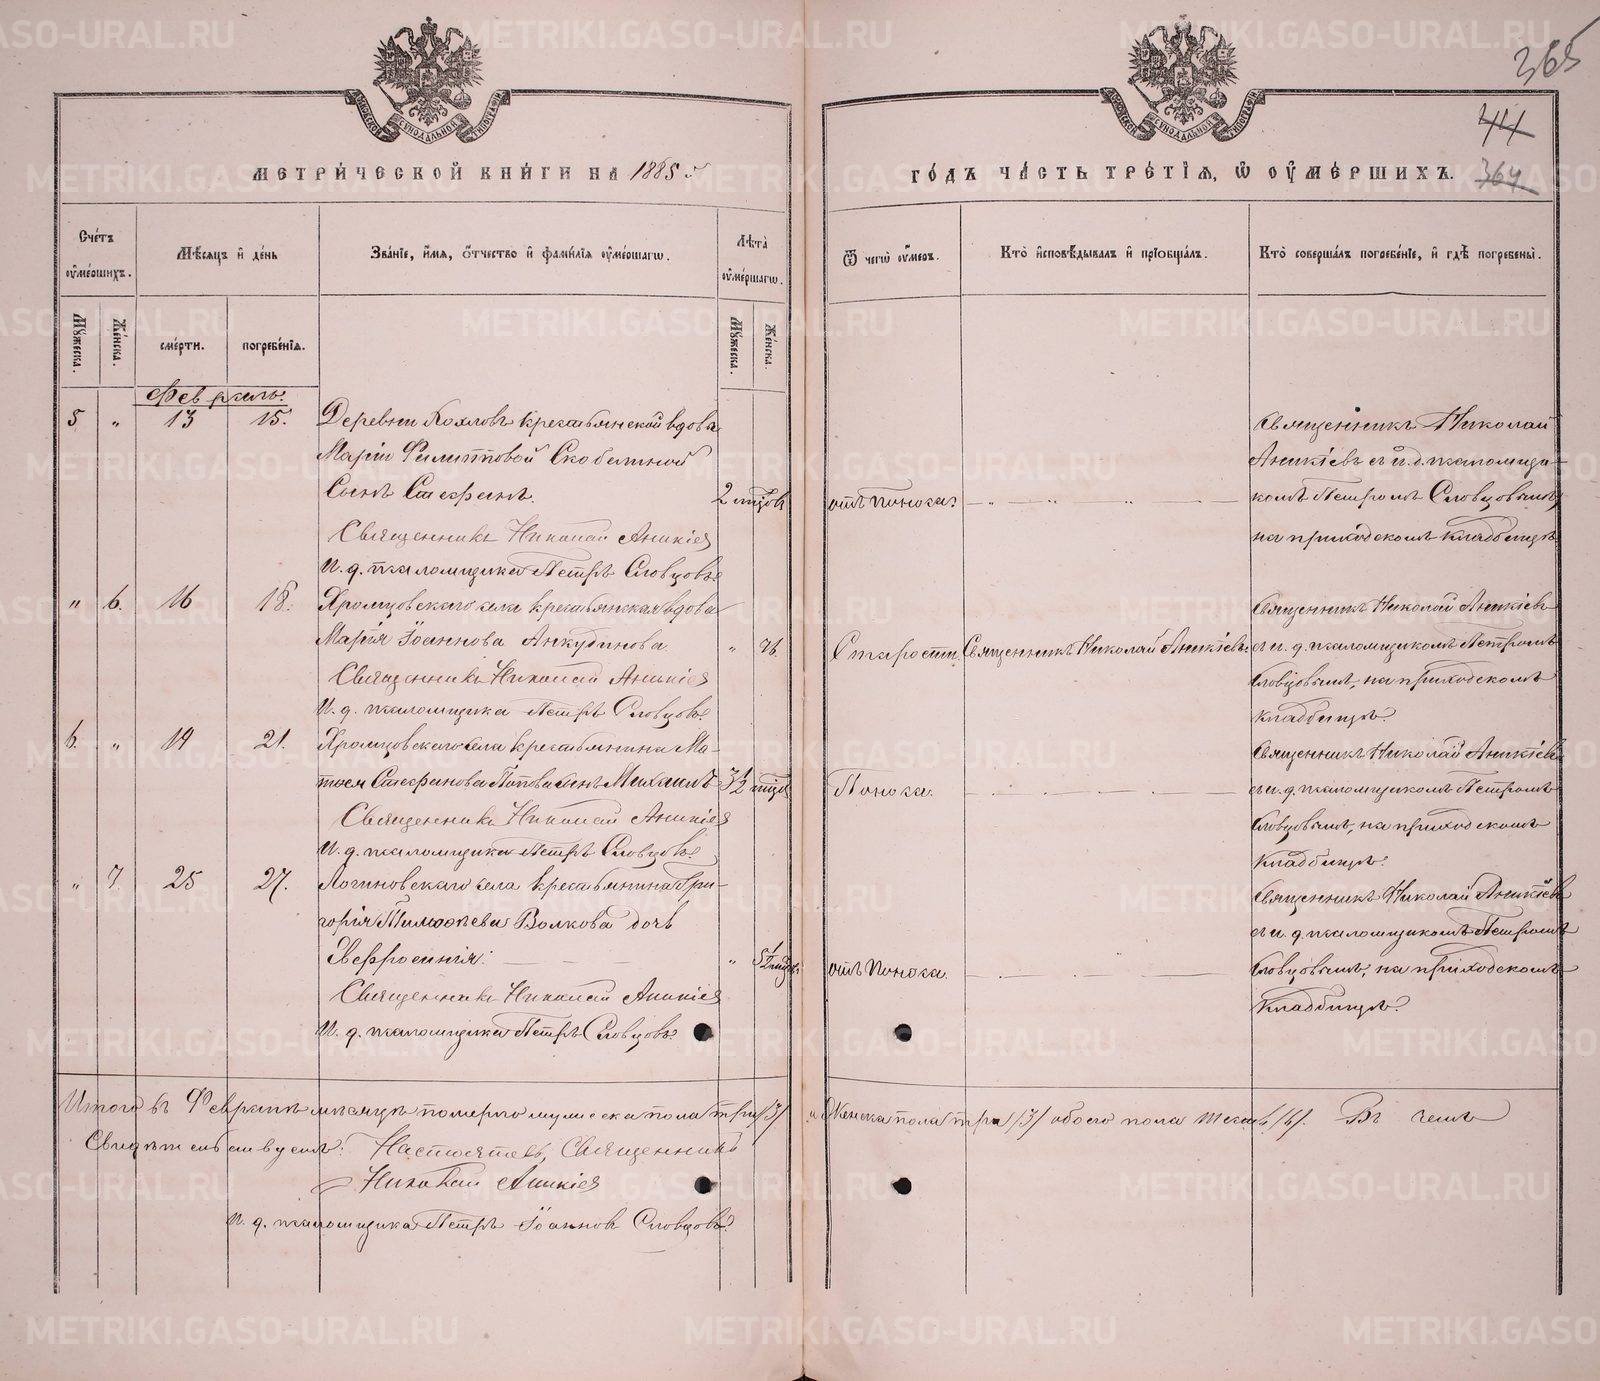 365
44
364
МЕТРИЧЕСКОЙ КНИГИ НА 1885 г
ГОДЪ ЧАСТЬ ТРЕТІЯ, Ѿ ОУМЕРШИХЪ.
Счетъ оумершихъ.
Мѣсяцъ и день
Званіе, имя, отчество и фамилія оумершагѡ.
Лѣта оумершагѡ.
Ѿ чегѡ оумеръ.
Кто исповѣдывалъ и пріобщалъ.
Кто совершалъ погребеніе, и гдѣ погребены.
Мужеска.
Женска.
смерти.
погребенія.
Мужеска.
Женска.
Февраль.
5 " 13 15. Деревни крестьянской вдовы
Маріи Филипповой Скобелиной
Сынъ Стефанъ. 2 мцовъ отъ поноса.
Священникъ Николай
Аникіевъ съ и. д. псаломщи-
комъ Петромъ Словцовымъ,
на приходскомъ кладбищѣ
Священникъ Николай Аникіев
И. д. псаломщика Петръ Словцовъ
" 6. 16 18. Хромцовскаго села крестьянская вдова
Марія Іоаннова Анкудинова " 76. Старости Священникъ Николай Аникіевъ.
Священникъ Николай Аникіевъ
съ и. д. псаломщикомъ Петромъ
Словцовымъ, на приходскомъ
кладбищѣ.
Священникъ Николай Аникіев
И. д. псаломщика Петръ Словцовъ.
6. " 19 21. Хромцовскаго села крестьянина Ма-
Стефанова Попова сынъ Михаилъ 3½ мцов Поноса.
Священникъ Николай Аникіевъ
съ и. д. псаломщикомъ Петромъ
Словцовымъ, на приходскомъ
кладбищѣ.
Священникъ Николай Аникіев
И. д. псаломщика Петръ Словцовъ.
" 7. 25 27. Логиновскаго села крестьянина Гри-
горія Тимофѣева Волкова дочь
Евфросинія: " отъ поноса.
Священникъ Николай Аникіевъ
съ и. д. псаломщикомъ Петромъ
Словцовымъ, на приходскомъ
кладбищѣ.
Священникъ Николай Аникіев
И. д. псаломщика Петръ Словцовъ.
Итого въ Февралѣ мѣсяцѣ померло мужеска пола три /3/ и Женска пола три /3/ обоего пола шесть /6/. Въ чемъ
Свидѣтельствуемъ: Настоятель, Священникъ
Николай Аникіев
И. д. псаломщика Петръ Іоанновъ Словцовъ.
METRIKI.GASO-URAL.RU